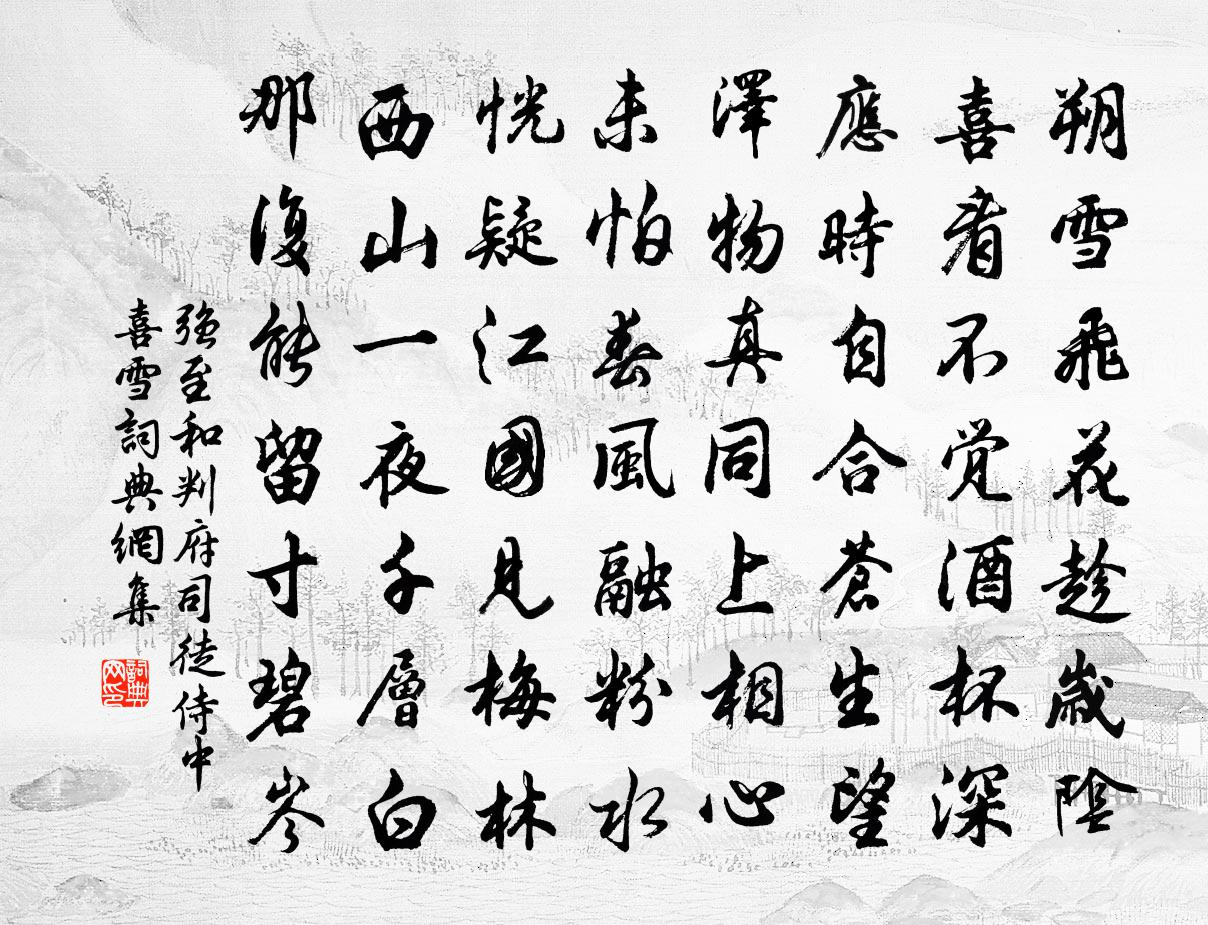 朔雪飛花趁歲陰
喜看不覺酒杯深
應時自合蒼生望
澤物真同上相心
未怕春風融粉水
恍疑江國見梅林
西山一夜千層白
那復能留寸碧岑
強至和判府司徒侍中
喜雪詞典網集
詞典网印